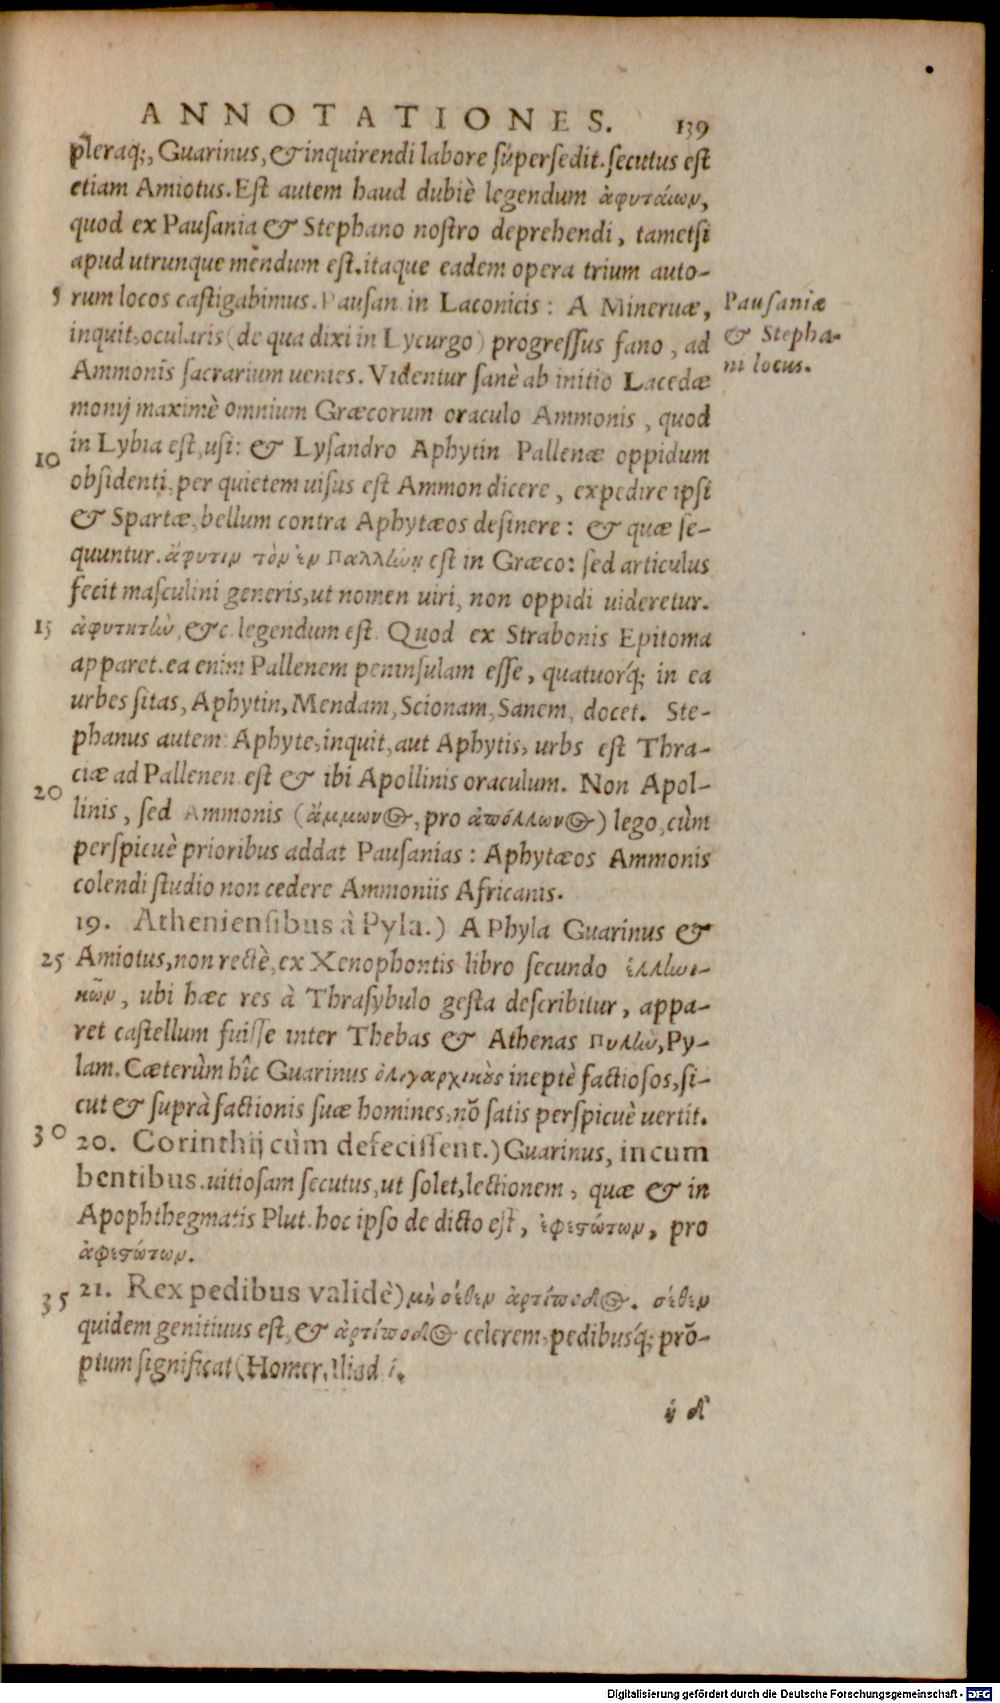 ANNOTATIONES. 139
pleraq;, Guarinus, & inquirendi labore supersedit. secutus est
etiam Amiotus. Est autem haud dubiè legendum ἀφυταίων,
quod ex Pausania & Stephano nostro deprehendi, tametsi
apud utrunque mendum est. itaque eadem opera trium auto-
5 rum locos castigabimus. Pausan. in Laconicis: A Mineruæ,
inquit, ocularis (de qua dixi in Lycurgo) progressus fano, ad
Ammonis sacrarium uenies. Videntur sanè ab initio Lacedæ
monij maximè omnium Græcorum oraculo Ammonis, quod
in Lybia est, usi: & Lysandro Aphytin Pallenæ oppidum
10 obsidenti, per quietem uisus est Ammon dicere, expedire ipsi
& Spartæ, bellum contra Aphytæos desinere: & quæ se-
quuntur. ἄφυτιν τὸν ἐν Παλλήνῃ est in Græco: sed articulus
fecit masculini generis, ut nomen uiri, non oppidi uideretur.
15 ἀφυτητὴν, &c. legendum est. Quod ex Strabonis Epitoma
apparet. ea enim Pallenem peninsulam esse, quatuorq́; in ea
urbes sitas, Aphytin, Mendam, Scionam, Sanem, docet. Ste-
phanus autem: Aphyte, inquit, aut Aphytis, urbs est Thra-
ciæ ad Pallenen. est & ibi Apollinis oraculum. Non Apol-
20 linis, sed Ammonis (ἄμμωνος, pro ἀπόλλωνος) lego, cùm
perspicuè prioribus addat Pausanias: Aphytæos Ammonis
colendi studio non cedere Ammoniis Africanis.
19. Atheniensibus à Pyla.) A Phyla Guarinus &
25 Amiotus, non rectè, ex Xenophontis libro secundo ἑλληνι-
κῶν, ubi hæc res à Thrasybulo gesta describitur, appa-
ret castellum fuisse inter Thebas & Athenas Πυλὴν, Py-
lam. Cæterùm hîc Guarinus ὀλιγαρχικὸς ineptè factiosos, si-
cut & suprà factionis suæ homines, nō satis perspicuè uertit.
30 20. Corinthij cùm defecissent.) Guarinus, incum
bentibus. uitiosam secutus, ut solet, lectionem, quæ & in
Apophthegmatis Plut. hoc ipso de dicto est, ἐφεστώτων, pro
ἀφεστώτων.
35 21. Rex pedibus validè) μὲν σέθεν ἀρτίποδος. σέθεν
quidem genitiuus est, & ἀρτίποδος celerem, pedibusq́; prō-
ptum significat (Homer. Iliad. ί.
ἡ δ'
Pausaniæ
& Stepha-
ni locus.